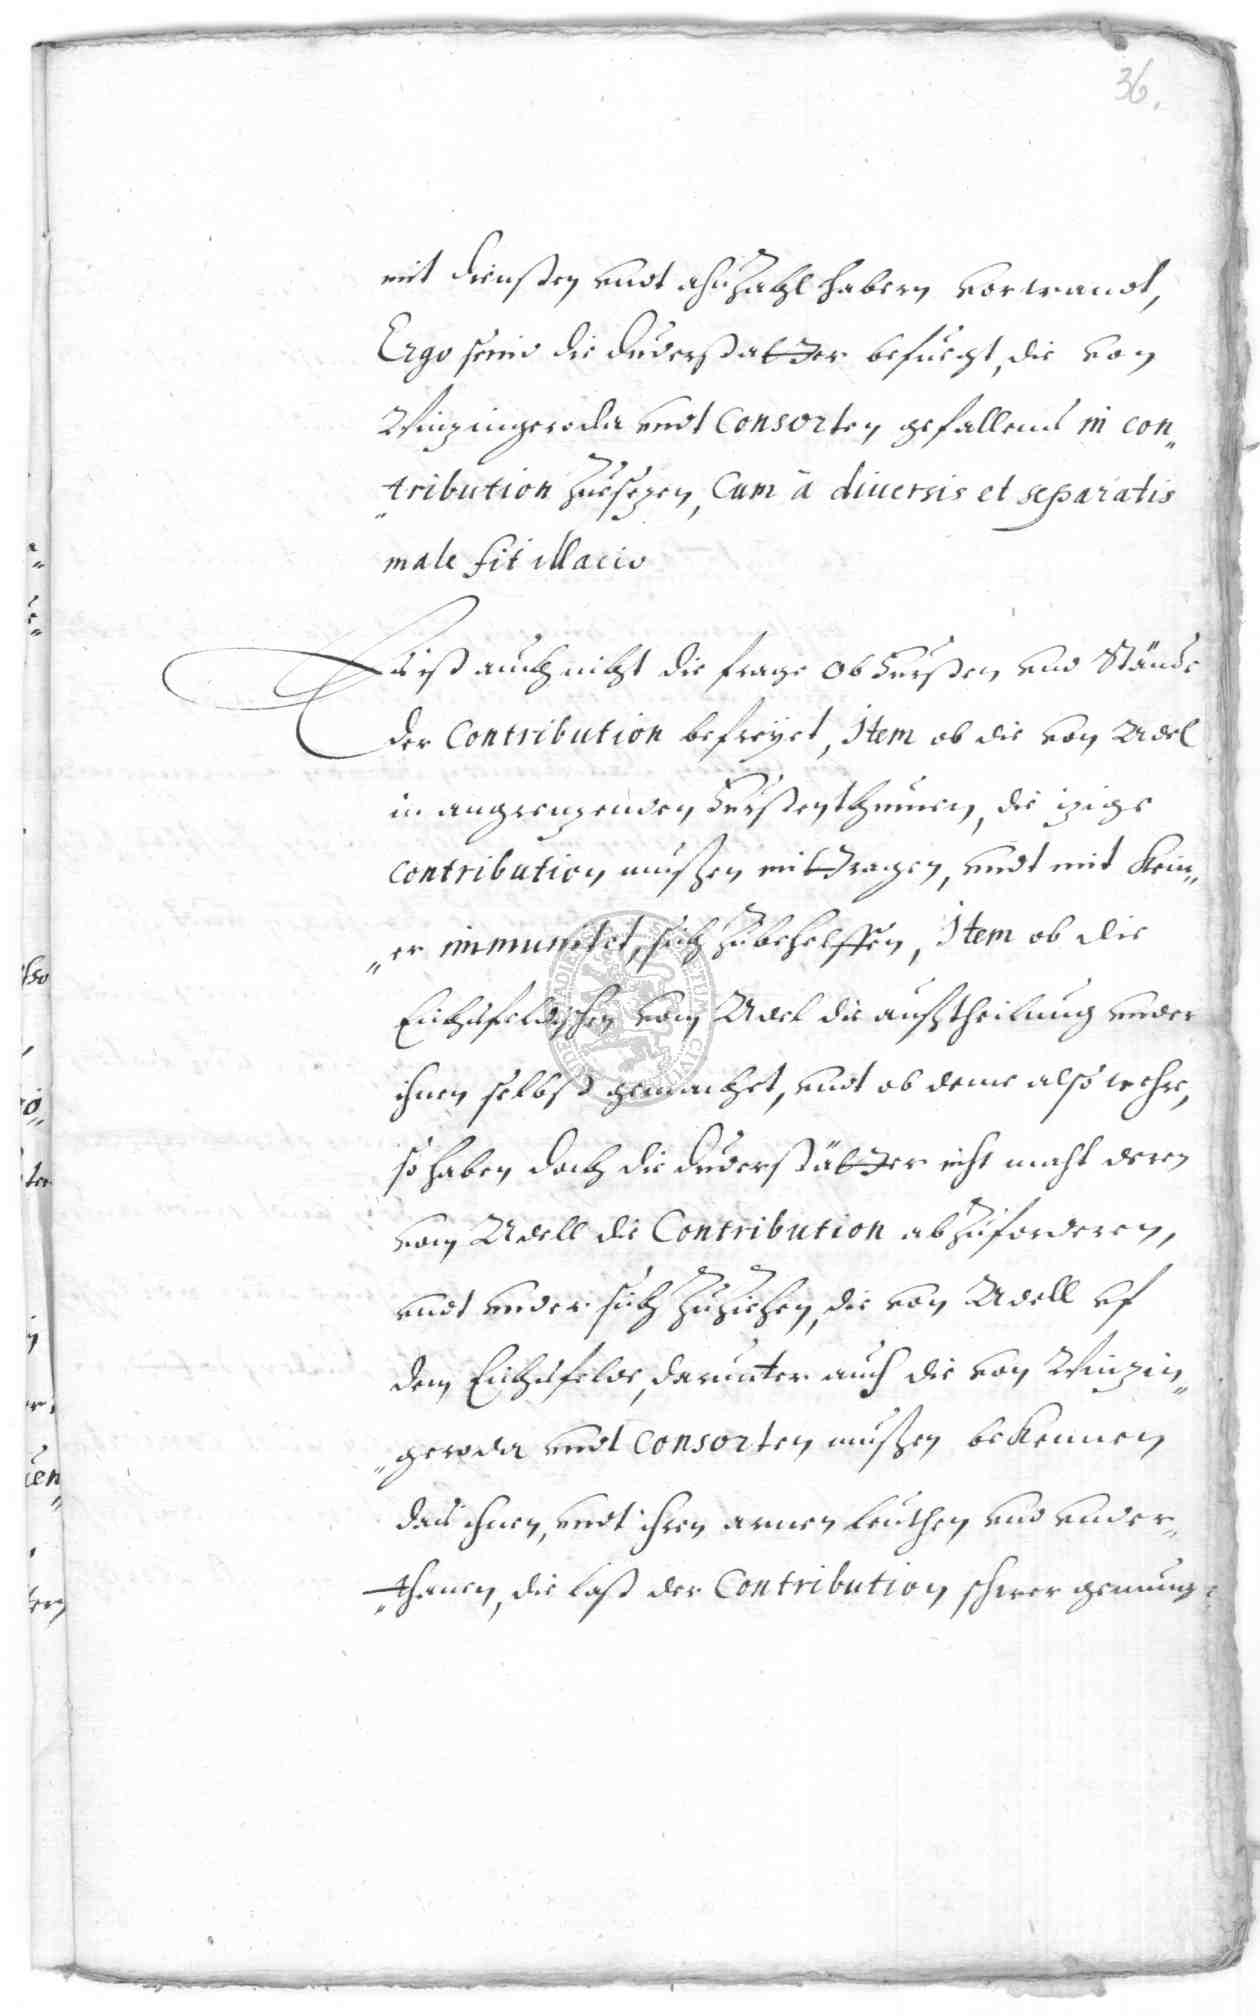 36.
mit diensten vndt habern vorwandt,
Ergo seind die Duderstatter befuegt, die von
Winzingeroda vndt Consorten gefallens in con„
„tribution zusezen, Cum à diuersis et separatis
male fit illacio
Es ist auch nicht die frage ob Fursten vnd Stände
der Contribution befreyet, Item ob die von Adel
in angrenzenden Furstenthumen, die izige
contribution mußen mit tragen, vndt mit Kein„
„er immunitet, sich zubehelffen, Item ob die
Eichsfeldischen vom Adel die außtheilung vnder
ihnen selbst gemachet, vndt ob deme also wehre,
so haben doch die Duderstätter nicht macht deren
vom Adell die Contribution abzuforderen,
vndt vnder sich zuziehen, die von Adell vf
dem Eichsfelde, darunter auch die von Winzin„
„geroda vndt Consorten mußen bekennen
das ihnen, vndt ihren armen leuthen vnd vnder„
„thanen, die last der Contribution schwer genung